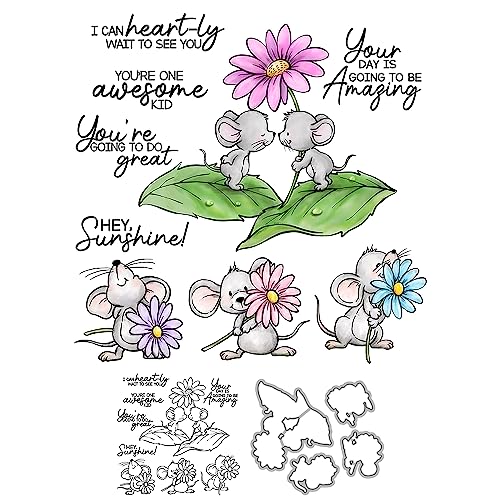 I CAN heart-ly
WAIT TO SEE YOU
YOU'RE ONE
awesome
KID
You're
GOING TO DO
great
Your
DAY IS
GOING TO BE
Amazing
HEY,
Sunshine!
I CAN heart-ly
WAIT TO SEE YOU
YOU'RE ONE
awesome
KID
You're
GOING TO DO
great
Your
DAY IS
GOING TO BE
Amazing
HEY,
Sunshine!